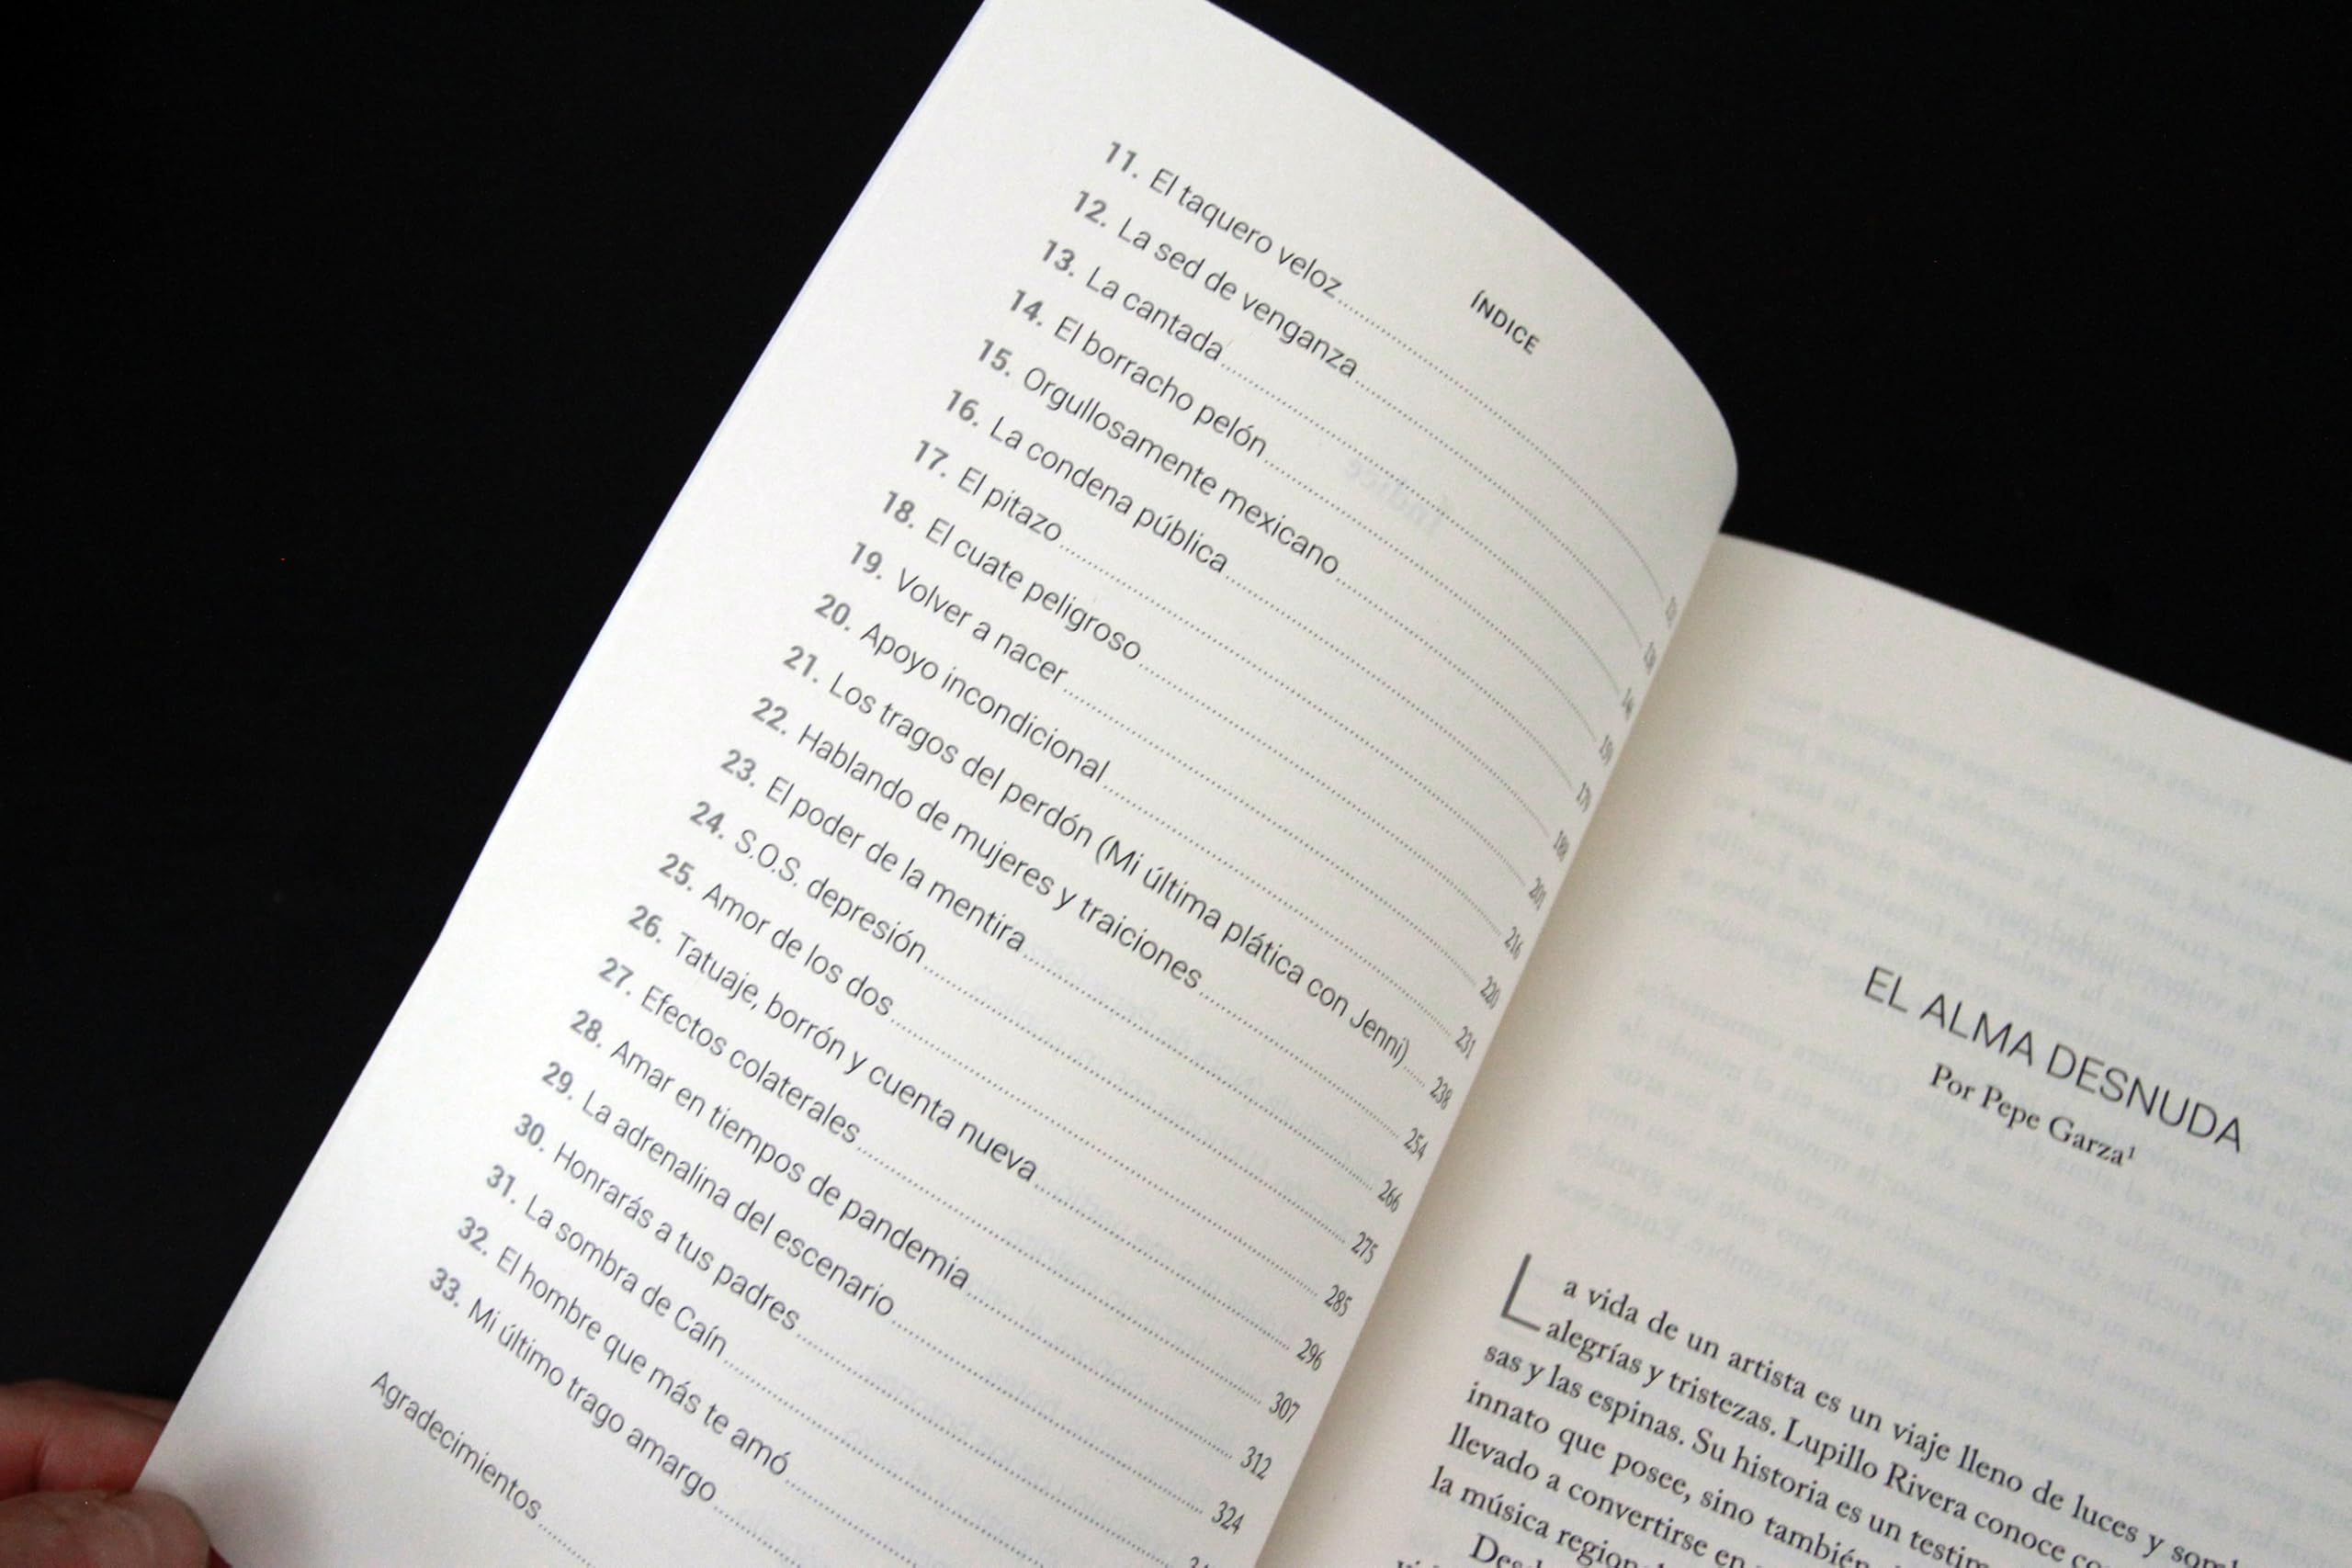 ÍNDICE
11. El taquero veloz
12. La sed de venganza
13. La cantada
14. El borracho pelón 159
15. Orgullosamente mexicano
16. La condena pública
17. El pitazo 201
18. El cuate peligroso 216
19. Volver a nacer 220
20. Apoyo incondicional 231
21. Los tragos del perdón (Mi última plática con Jenni) 238
22. Hablando de mujeres y traiciones 254
23. El poder de la mentira 266
24. S.O.S. depresión 275
25. Amor de los dos 285
26. Tatuaje, borrón y cuenta nueva 296
27. Efectos colaterales 307
28. Amar en tiempos de pandemia 312
29. La adrenalina del escenario 324
30. Honrarás a tus padres
31. La sombra de Caín
32. El hombre que más te amó
33. Mi último trago amargo
Agradecimientos
EL ALMA DESNUDA
Por Pepe Garza¹
La vida de un artista es un viaje lleno de luces y
alegrías y tristezas. Lupillo Rivera conoce
sas y las espinas. Su historia es un
innato que posee, sino también
llevado a convertirse en
la música